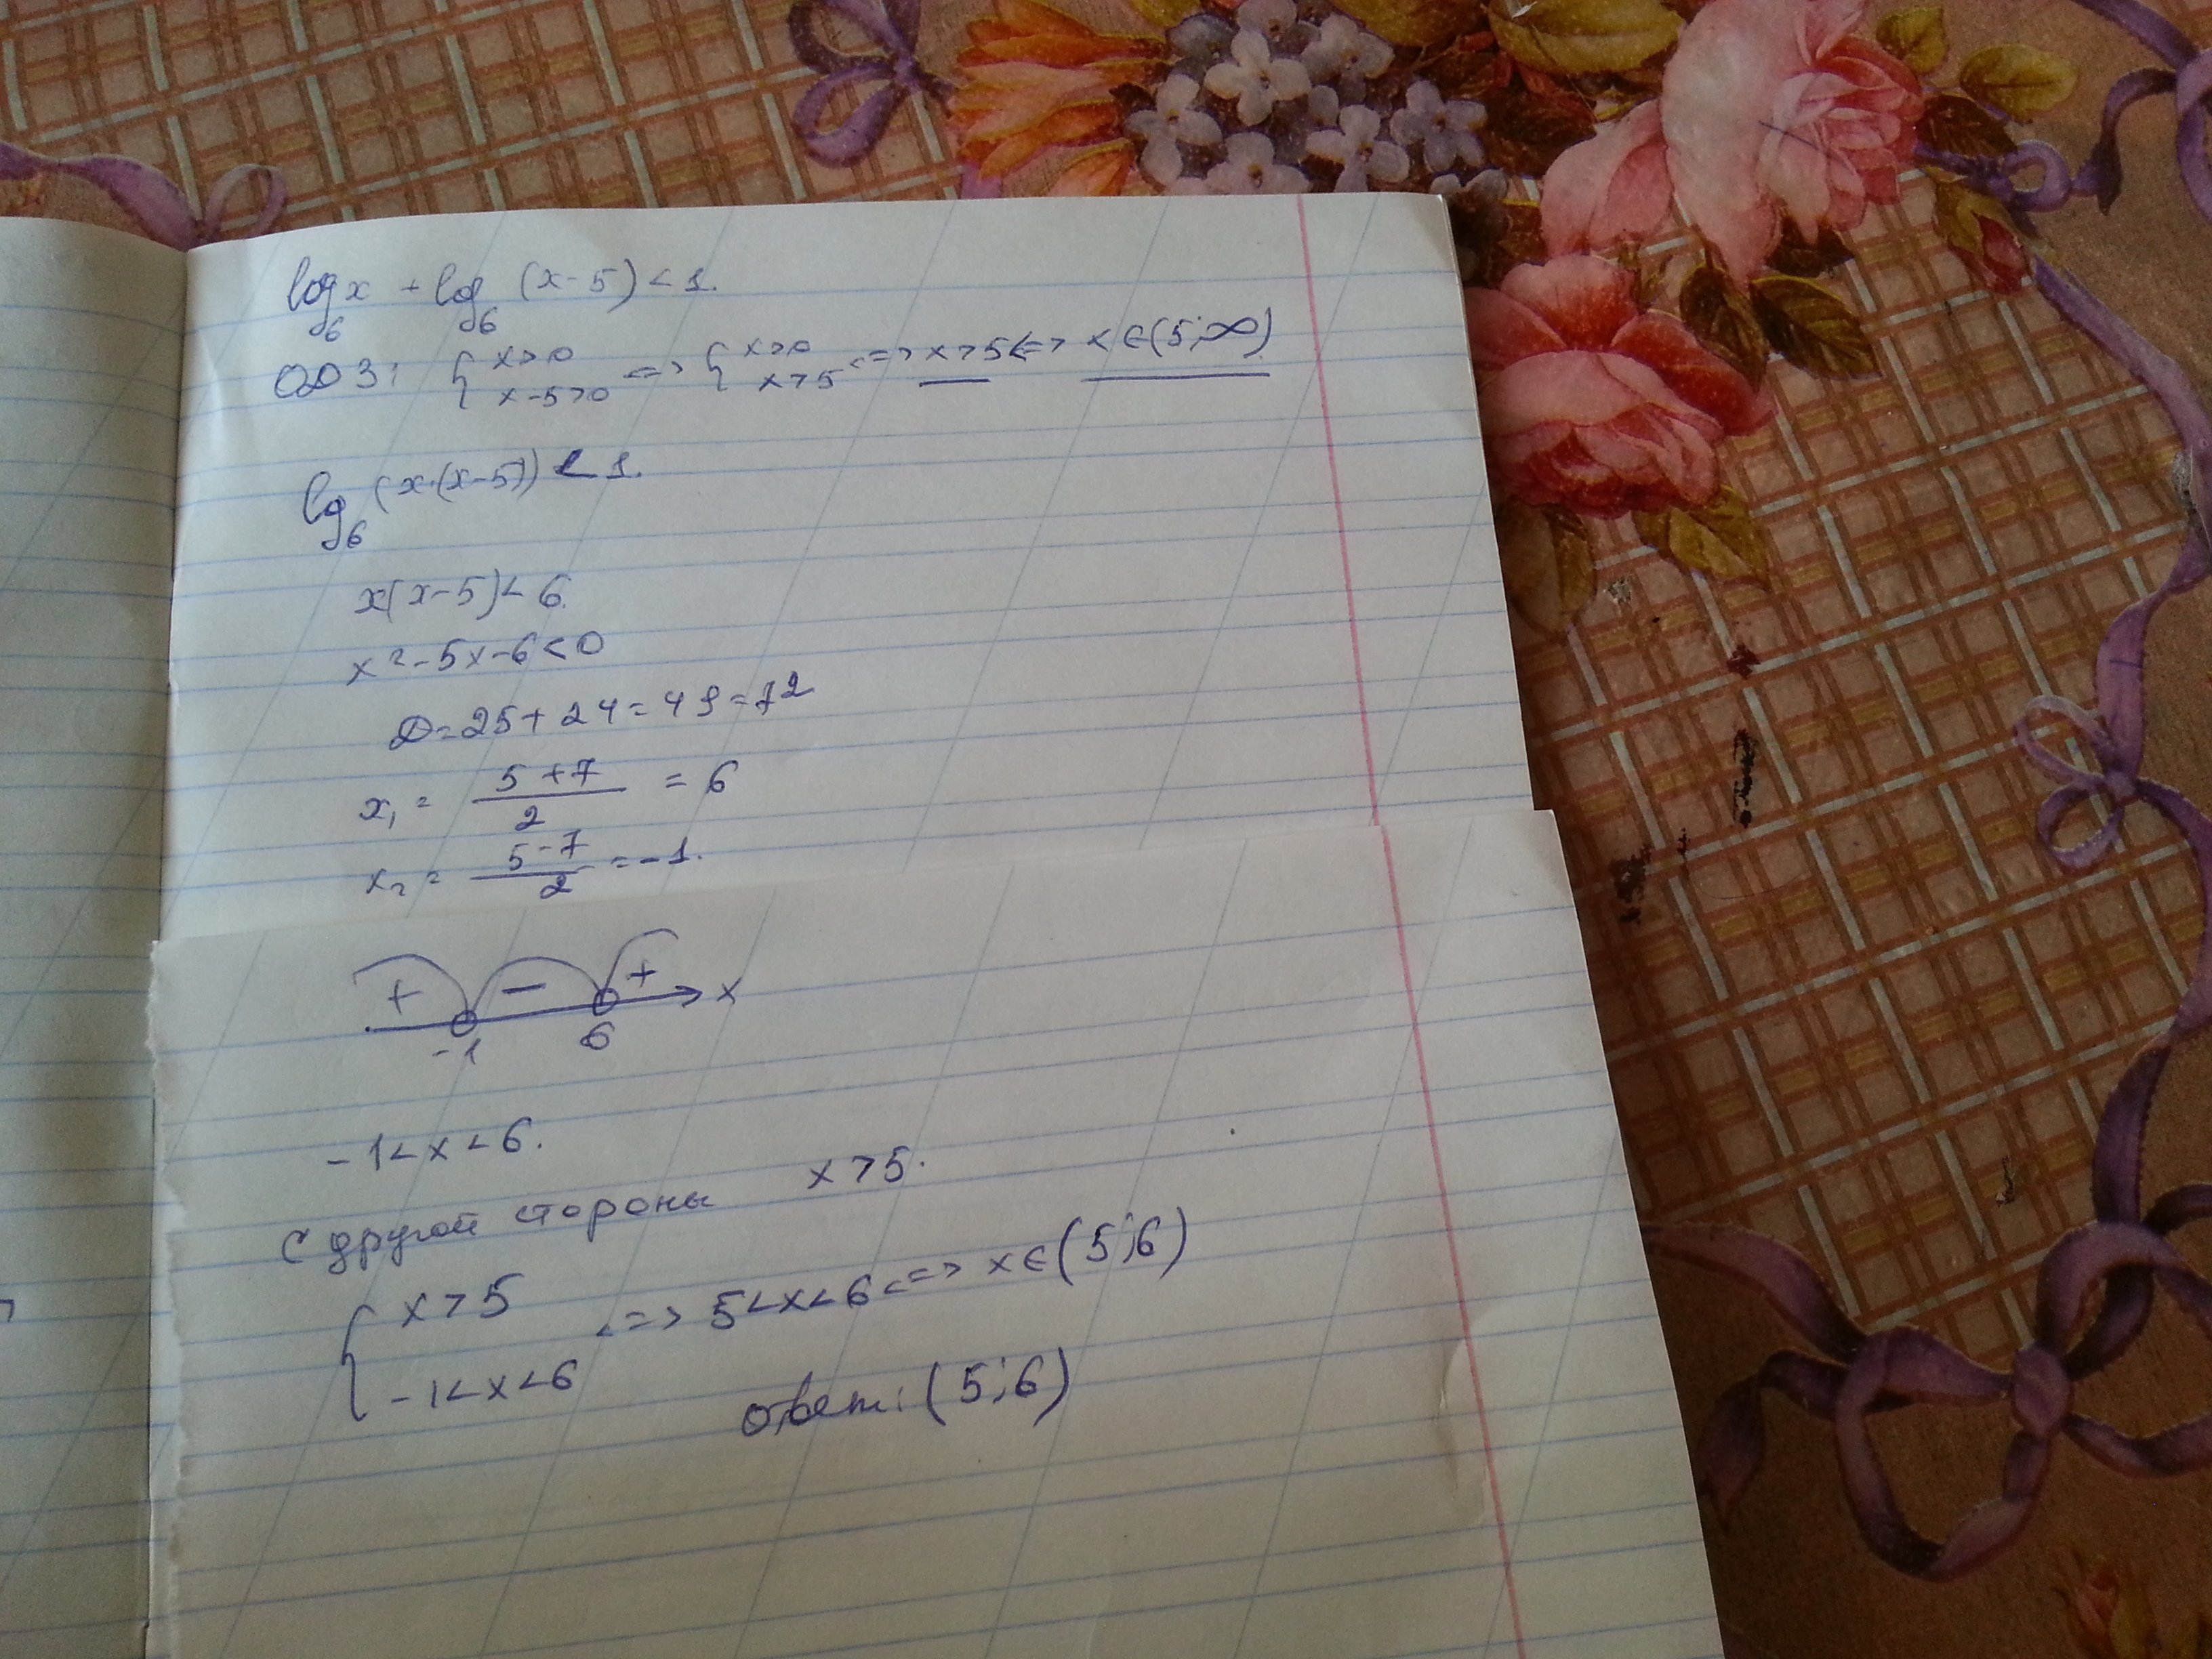 log₆x + log₆(x-5)<1.
ОДЗ: { x>0 x-5>0 <=> { x>0 x>5 <=> x>5 <=> x∈(5;∞)
log₆(x·(x-5)) < 1.
x(x-5)<6.
x²-5x-6<0
D=25+24=49=7²
x₁ = (5+7)/2 = 6
x₂ = (5-7)/2 = -1.
+ - + x
-1 6
-1<x<6.
С другой стороны x>5.
{ x>5 -1<x<6 <=> 5<x<6 <=> x∈(5;6)
ответ: (5;6)